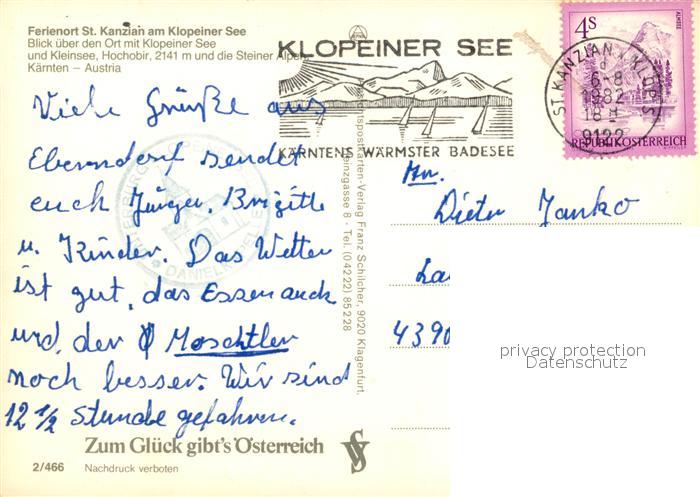 Ferienort St. Kanzian am Klopeiner See
Blick über den Ort mit Klopeiner See
und Kleinsee, Hochobir, 2141 m und die Steiner Alpen
Kärnten – Austria
KLOPEINER SEE
KÄRNTENS WÄRMSTER BADESEE
ST. KANZIAN
6-8
1982
18
9122
4S
ALMSEE
REPUBLIK ÖSTERREICH
Viele Grüße aus
Eberndorf sendet
euch Jürgen, Brigitte
u. Kinder. Das Wetter
ist gut, das Essen auch
und, der Moschtler
noch besser. Wir sind
12 1/2 Stunde gefahren.
DANIEL
Ansichtspostkarten-Verlag Franz Schilcher, 9020 Klagenfurt,
gasse 8 - Tel. (04222) 85228
Hrn.
Dieter Janko
4390
privacy protection
Datenschutz
Zum Glück gibt's Österreich
2/466
Nachdruck verboten